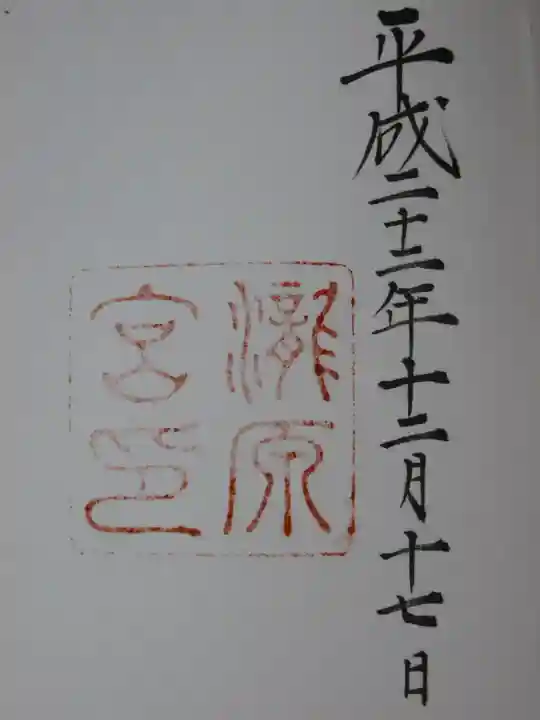 平成二十二年十二月十七日
瀧原
宮印